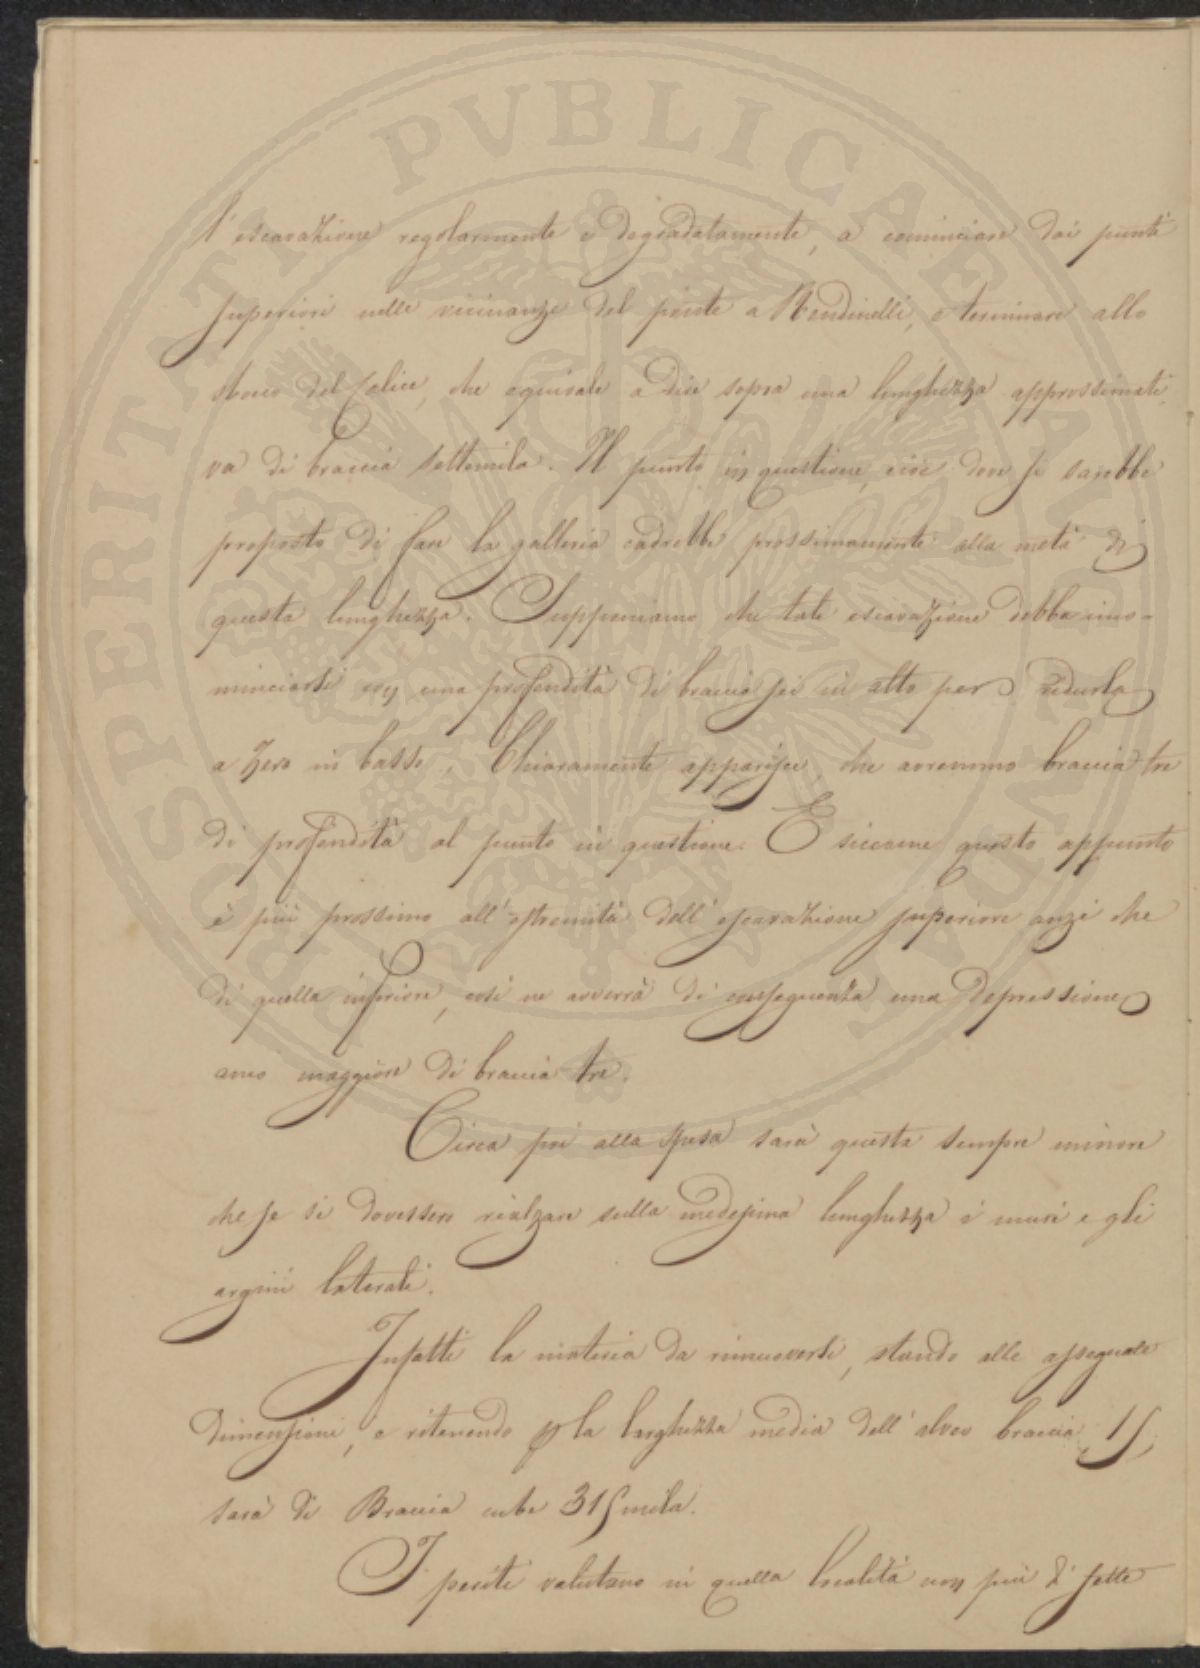 l'escavazione regolarmente e degradatamente, a cominciare dai punti
superiori nelle vicinanze del ponte a Rendinelli, e terminare allo
sbocco del Calice, che equivale a dire sopra una lunghezza approssimati-
va di braccia settemila. Il punto in questione, cioè dove si sarebbe
proposto di fare la galleria cadrebbe prossimamente alla metà di
questa lunghezza. Supponiamo che tale escavazione debba inco-
minciarsi con una profondità di braccia sei in alto per ridurla
a zero in basso. Chiaramente apparisce, che avremmo braccia tre
di profondità al punto in questione. E siccome questo appunto
è più prossimo all'estremità dell'escavazione superiore anzi che
di quella inferiore, così ne avverrà di conseguenza una depressione
anco maggiore di braccia tre.
Circa poi alla spesa sarà questa sempre minore
che se si dovessero rialzare sulla medesima lunghezza i muri e gli
argini laterali.
Infatti la materia da rimuoversi, stando alle assegnate
dimensioni, e ritenendo p la larghezza media dell'alveo braccia 15,
sarà di Braccia cube 315mila.
I periti valutano in quella località non più di sette
PROSPERITATI PVBLICAE AVGENDAE